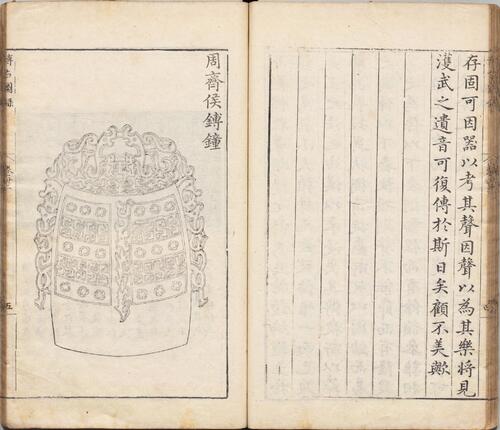 存固可因器以考其聲因聲以為其樂將見
濩武之遺音可復傳於斯日矣顧不美歟
周齊侯鎛鐘
博古圖錄
五